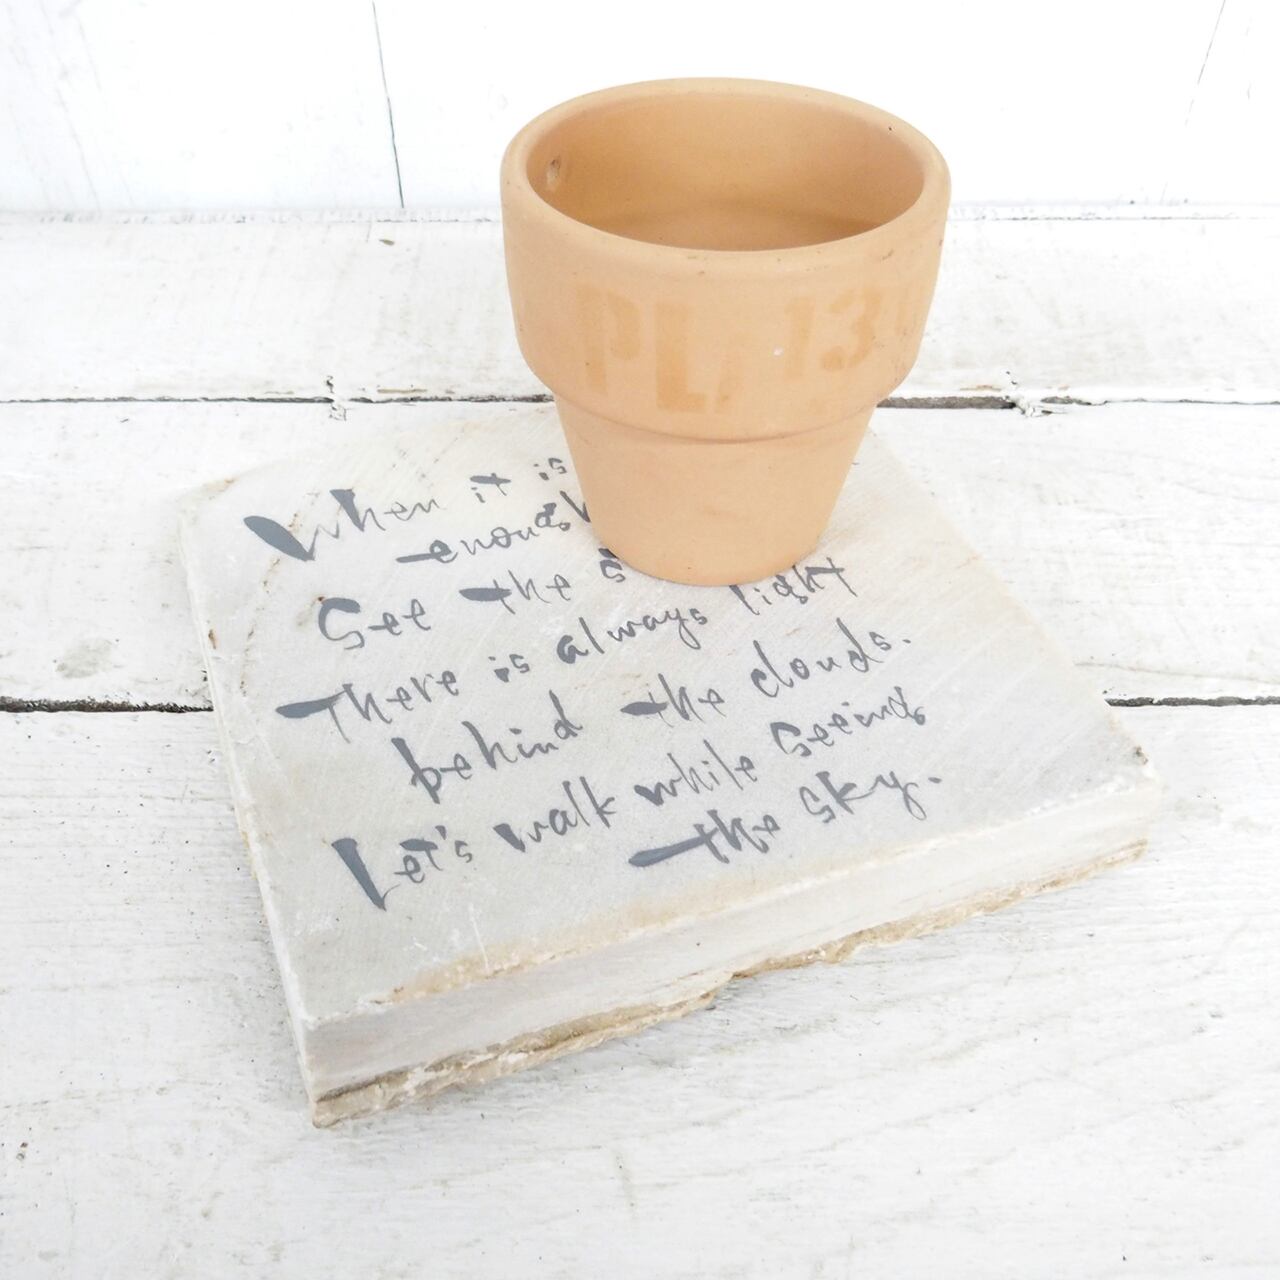 PL 13
When it is
enough
See the
There is always light
behind the clouds.
Let's walk while seeing
the sky.